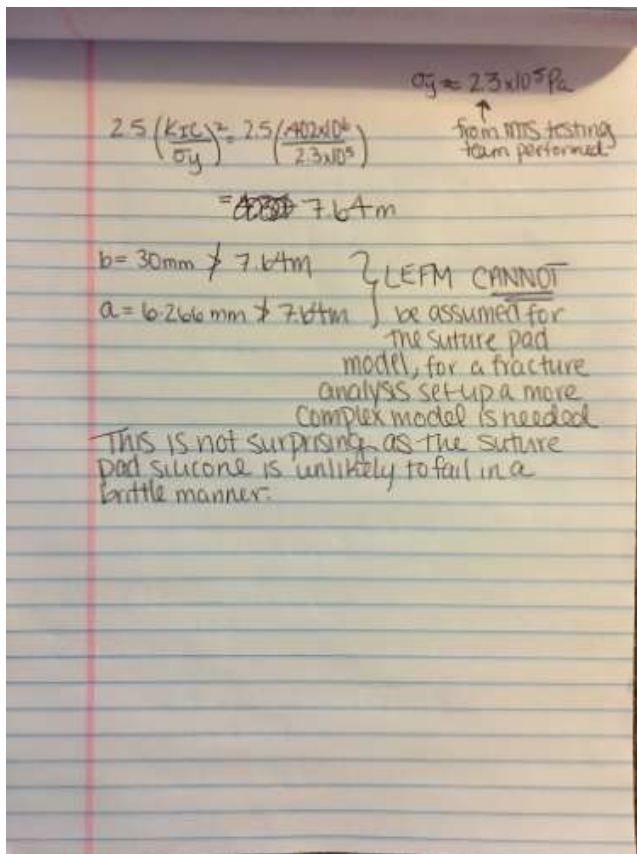 σy ≈ 2.3x10⁵Pa
↑
from MTS testing
team performed
2.5 (KIC/σy)² = 2.5 (.402x10⁶/2.3x10⁵)
= 7.64m
b = 30mm ≯ 7.64m
a = 6.266mm ≯ 7.64m
} LEFM CANNOT
be assumed for
the suture pad
model, for a fracture
analysis set-up a more
complex model is needed
This is not surprising as the suture
pad silicone is unlikely to fail in a
brittle manner.